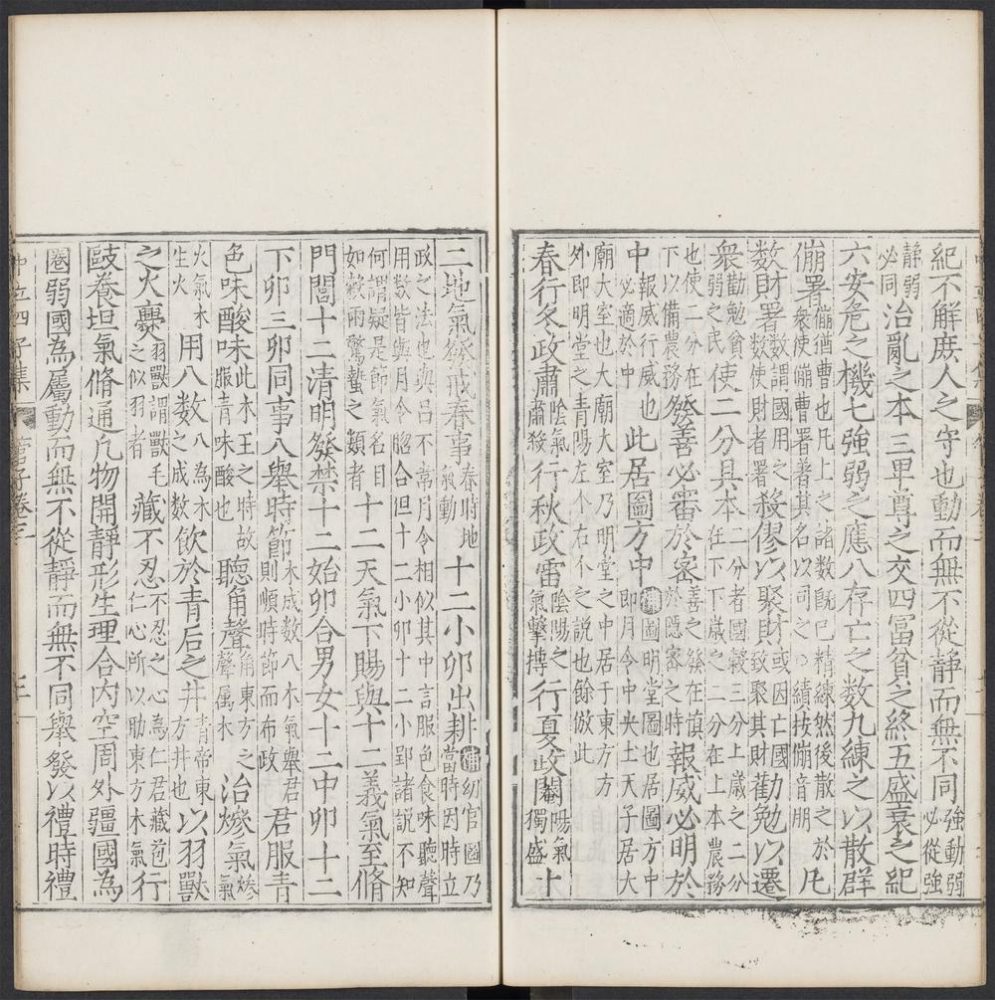 紀不解庶人之守也動而無不從靜而無不同強動弱必從強
靜弱必同治亂之本三卑尊之交四富貧之終五盛衰之紀
六安危之機七強弱之應八存亡之數九練之以散群
傰署傰猶曹也凡上之諸數既已精練然後散之於群眾使傰曹署著其名以司之○績按傰音朋凡
數財署數謂國用之數使財者署殺僇以聚財或因亡國致聚其財勸勉以遷
衆勸勉貧弱之民使二分具本二分者國穀三分上歲之二分在下下歲之二分在上本農務
也使二分在下以備農務發善必審於密善之發在慎於隱密之時報威必明於
中報威行威也必適於中此居圖方中補圖明堂圖也居圖方中即月令中央土天子居大
廟大室也大廟大室乃明堂之中居于東方方
外即明堂之青陽左个右个之說也餘倣此
春行冬政肅陰氣肅殺行秋政雷陰陽之氣擊摶行夏政閹陽氣獨盛十
二地氣發戒春事春時地氣動十二小卯出耕補幼官圖乃當時因時立
政之法也與呂不常月令相似其中言服色食味聽聲
用數皆與月令脗合但十二小卯十二小郢諸說不知
何謂疑是節氣名目如穀雨驚蟄之類者十二天氣下賜與十二義氣至脩
門閭十二清明發禁十二始卯合男女十二中卯十二
下卯三卯同事八舉時節木成數八木氣舉君則順時節而布政君服青
色味酸味此木王之時故服青味酸也聽角聲角東方之聲屬木治燥氣燥氣
火氣木生火用八數八為木之成數飲於青后之井青帝東方井也以羽獸
之火爨羽獸謂獸毛之似羽者藏不忍不忍之心為仁君藏苞仁心所以助東方木氣行
敺養坦氣脩通凡物開靜形生理合內空周外疆國為
圈弱國為屬動而無不從靜而無不同舉發以禮時禮
中立四子集 管子卷三